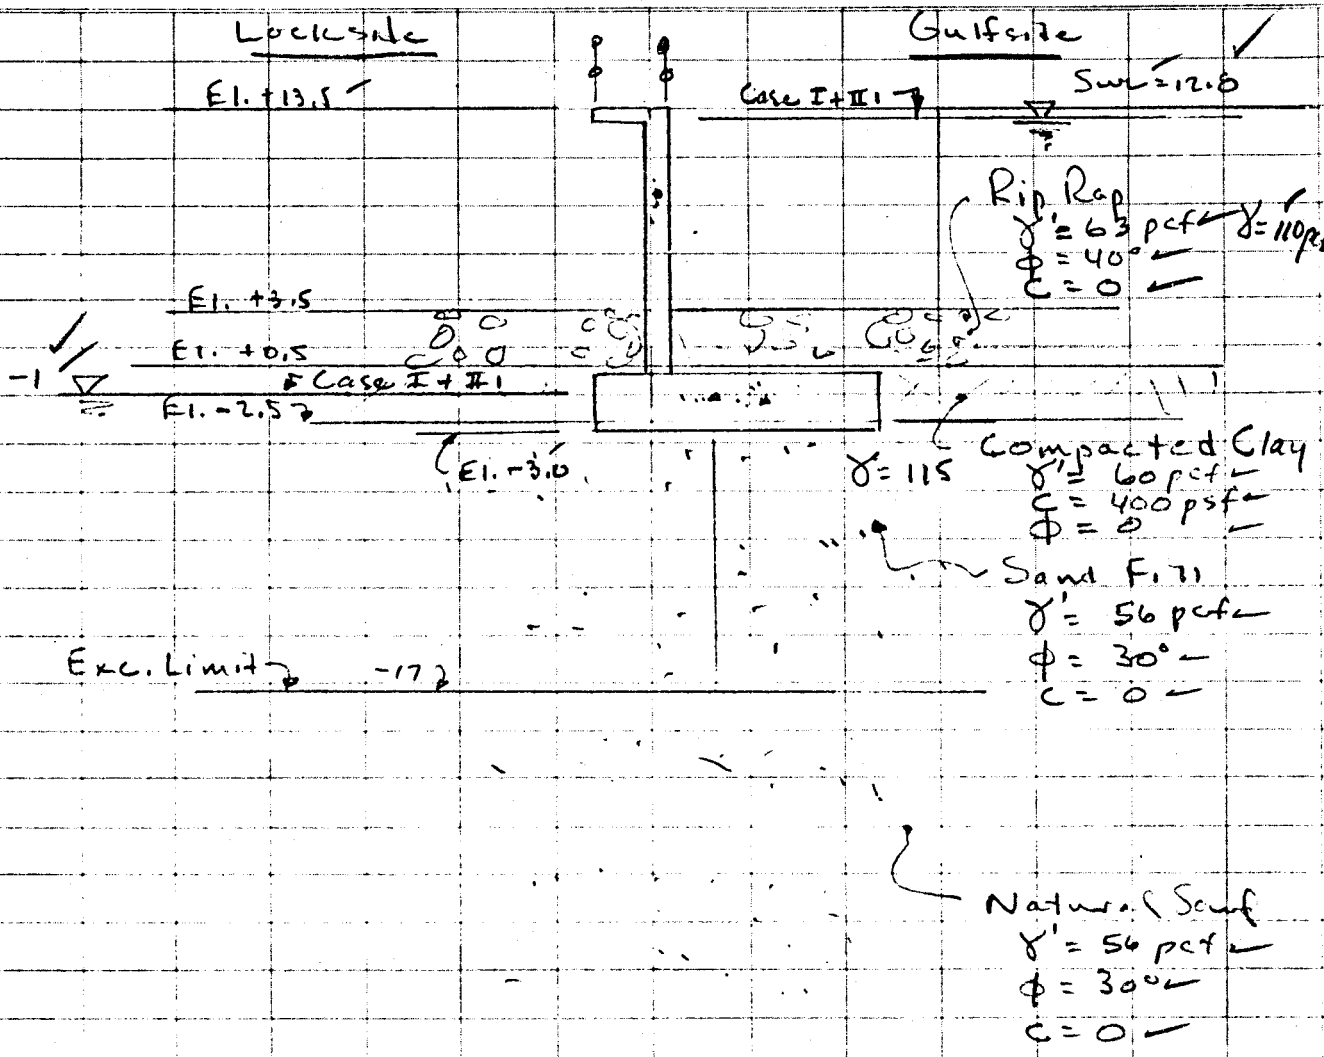 Lockside
Gulfside
El. +13.5
Case I+II
SWL=12.8
Rip Rap
γ'= 63 pcf γ= 110 pcf
ϕ = 40°
C = 0
El. +3.5
El. +0.5
-1
Case I + II
El. -2.5
El. -3.0
γ= 115
Compacted Clay
γ'= 60 pcf
C = 400 psf
ϕ = 0
Sand Fill
γ'= 56 pcf
ϕ = 30°
C = 0
Exc. Limit
-17
Natural Sand
γ'= 56 pcf
ϕ = 30°
C = 0